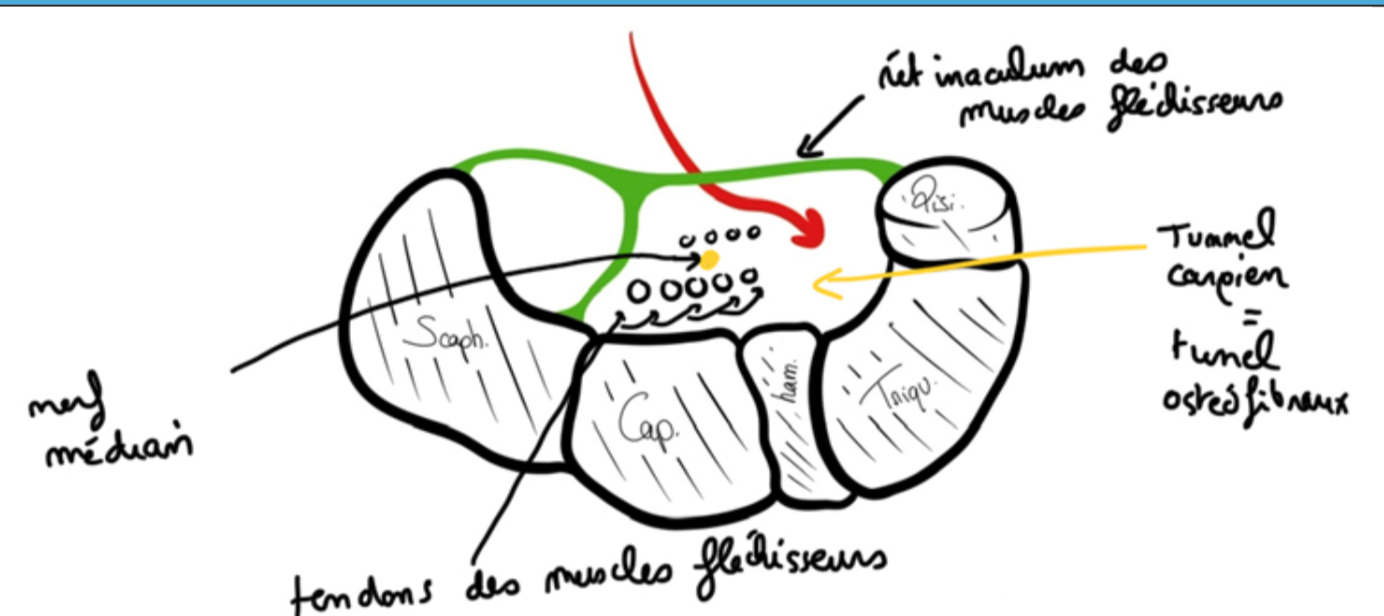 rétinaculum des
muscles fléchisseurs
Pisi.
Tunnel
carpien
=
tunel
ostéofibreux
Scaph.
ham.
Triqu.
Cap.
nerf
médian
tendons des muscles fléchisseurs